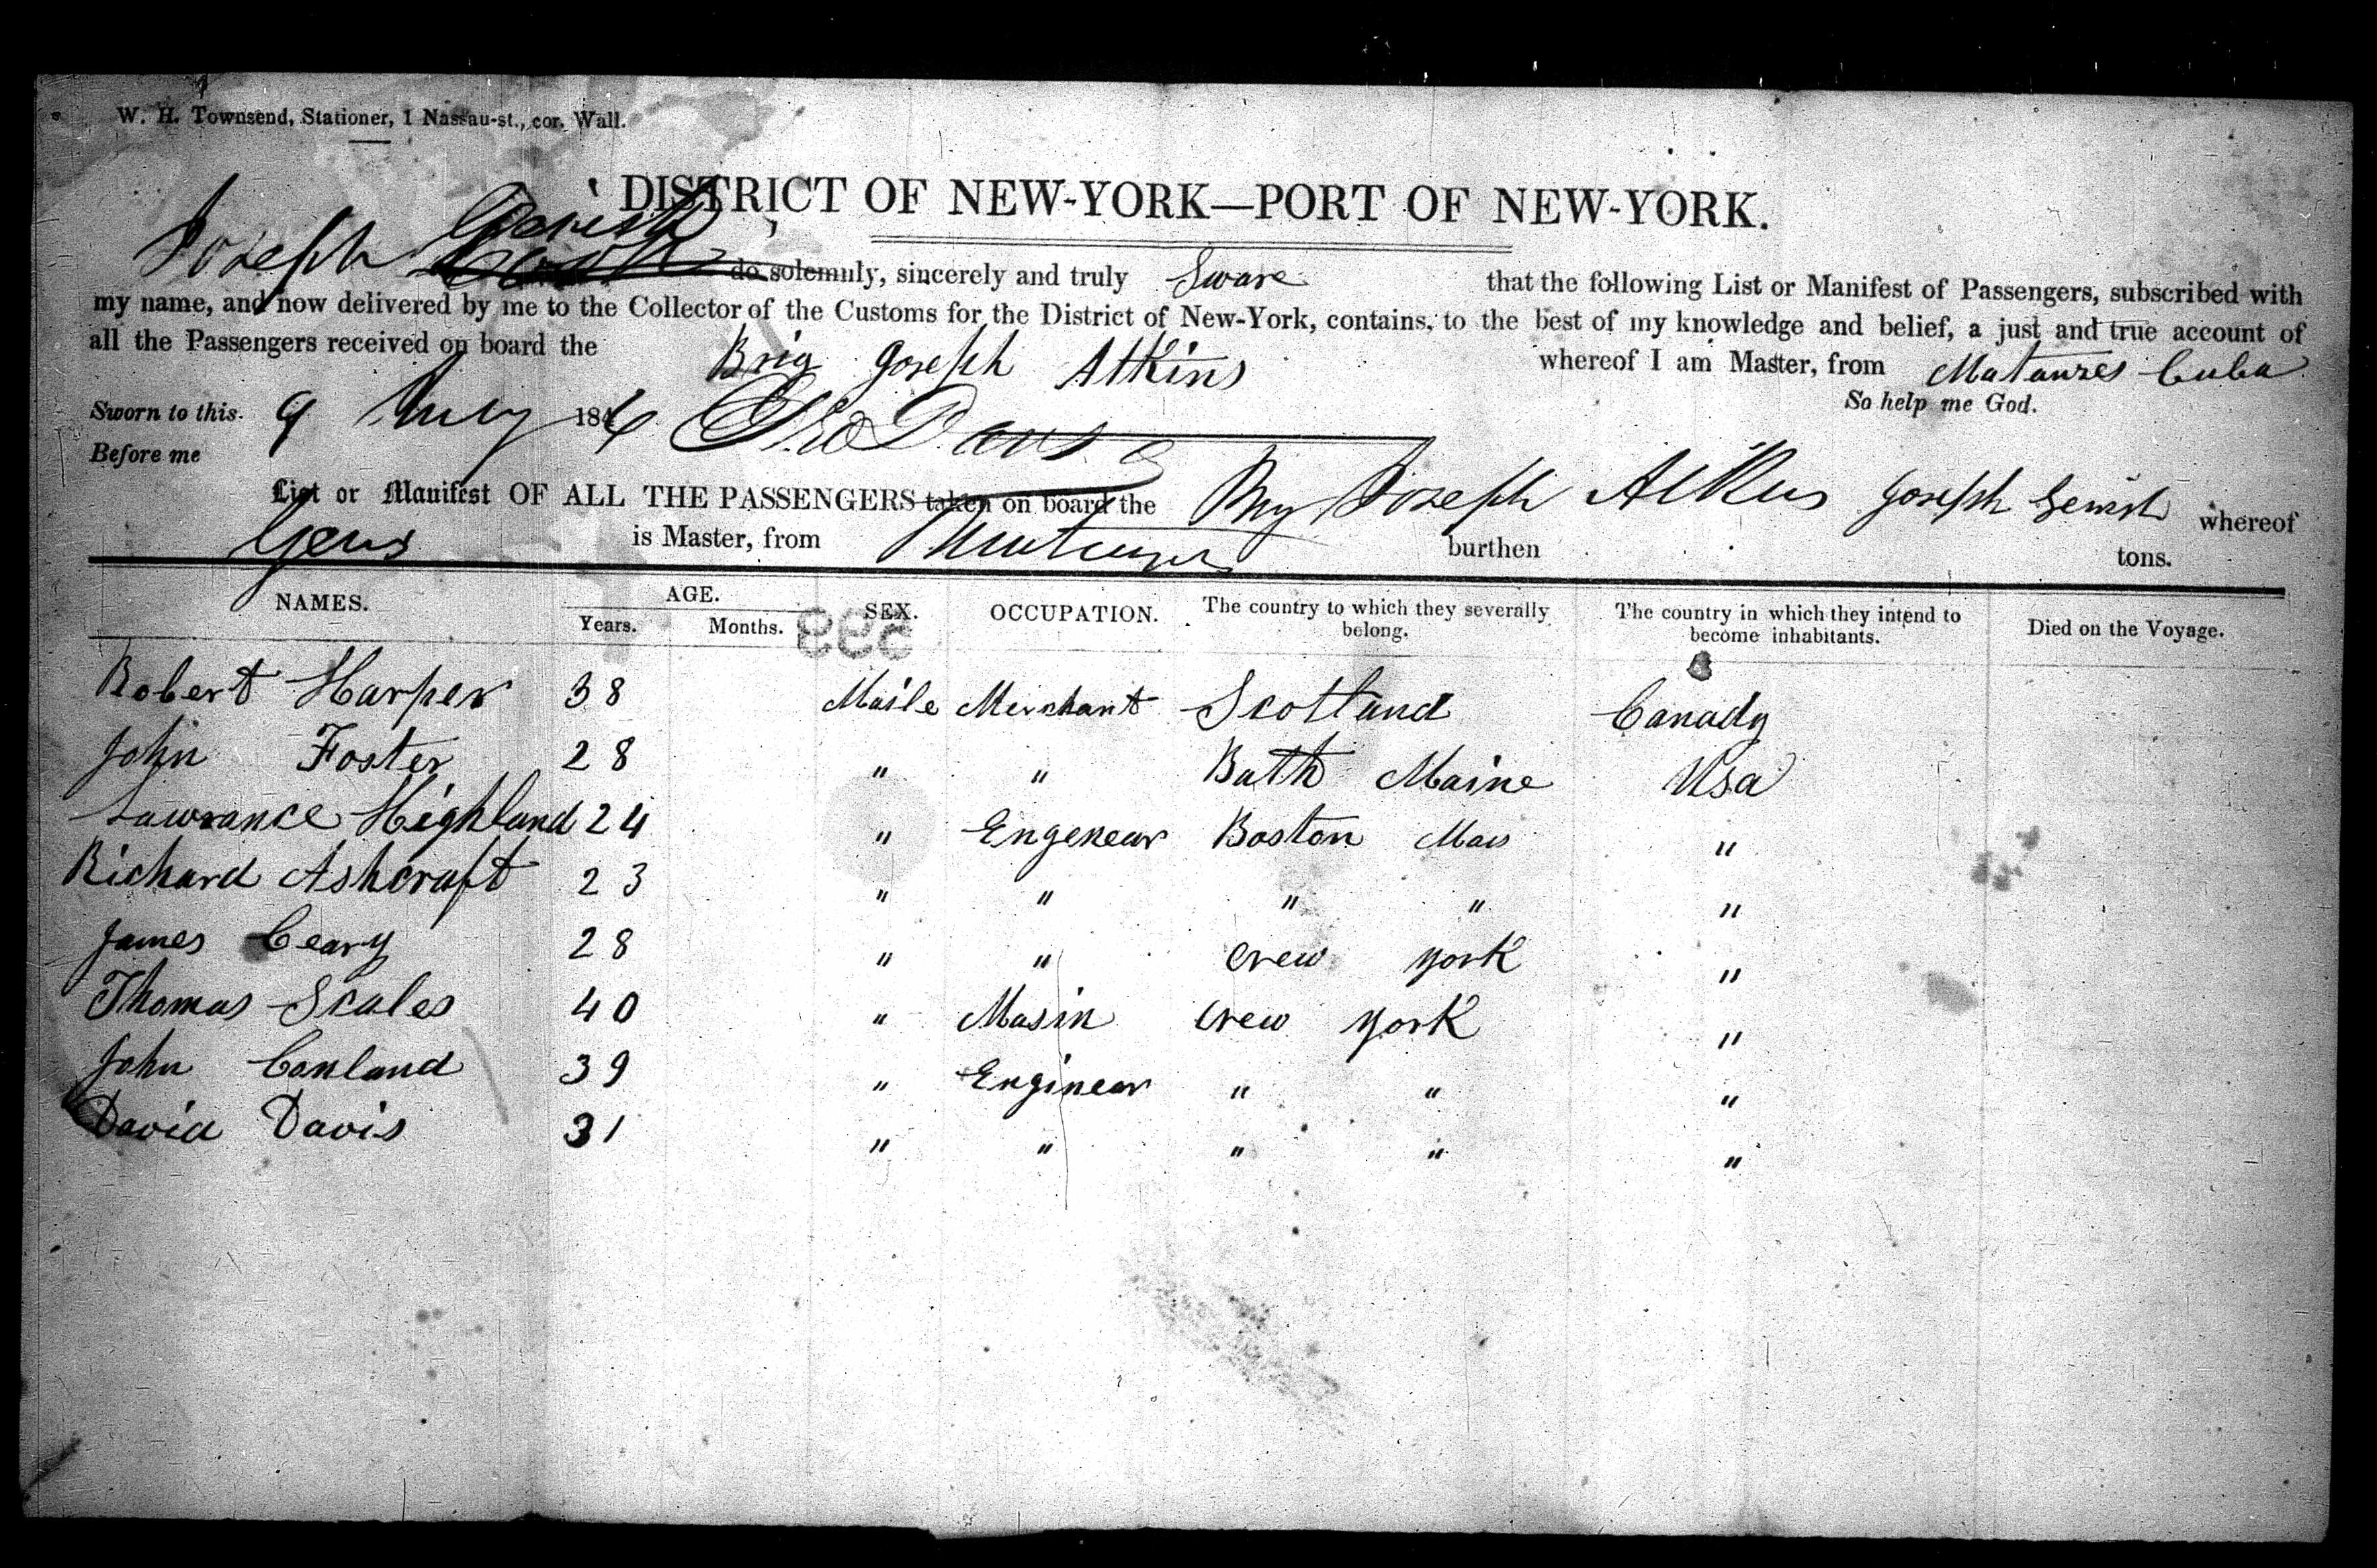 W. H. Townsend, Stationer, 1 Nassau-st., cor. Wall.
DISTRICT OF NEW-YORK—PORT OF NEW-YORK.
Joseph do solemnly, sincerely and truly Sware that the following List or Manifest of Passengers, subscribed with
my name, and now delivered by me to the Collector of the Customs for the District of New-York, contains, to the best of my knowledge and belief, a just and true account of
all the Passengers received on board the Brig Joseph Atkins whereof I am Master, from Matanzes Cuba
Sworn to this 9 July 184 So help me God.
Before me
List or Manifest OF ALL THE PASSENGERS taken on board the Joseph Joseph whereof
is Master, from burthen tons.
NAMES. AGE. SEX. OCCUPATION. The country to which they severally belong. The country in which they intend to become inhabitants. Died on the Voyage.
Years. Months.
Robert Harper 38 Maile Merchant Scotland Canady
John Foster 28 " " Bath Maine Usa
Lawrance Highland 24 " Engenear Boston Mas "
Richard Ashcraft 23 " " " " "
James Ceary 28 " " New York "
Thomas Scales 40 " Masin New York "
John Conland 39 " Enginear " " "
David Davis 31 " " " " "